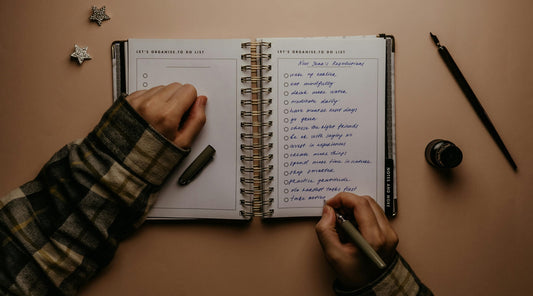 LET'S ORGANISE.TO DO LIST
LET'S ORGANISE.TO DO LIST
New Year's Resolutions
wake up earlier
eat mindfully
drink more water
meditate daily
have number meat days
go green
choose the right friends
be ok with saying no
invest in experiences
create more things
spend more time in nature
shop smarter
practise gratitude
do hardest tasks first
take action
NOTES AND MORE